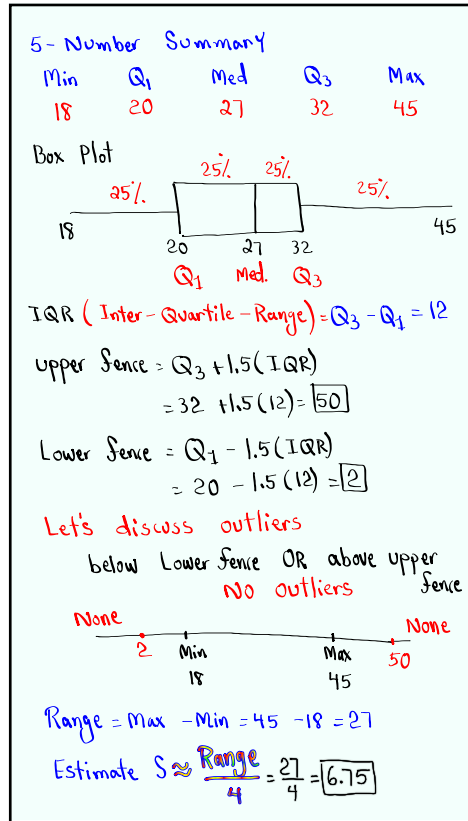 5 - Number Summary
Min Q₁ Med Q₃ Max
18 20 27 32 45
Box Plot
25% 25% 25% 25%
18 45
20 27 32
Q₁ Med. Q₃
IQR (Inter-Quartile-Range) = Q₃ - Q₁ = 12
Upper fence = Q₃ + 1.5(IQR)
= 32 + 1.5(12) = 50
Lower fence = Q₁ - 1.5(IQR)
= 20 - 1.5(12) = 2
Let's discuss outliers
below Lower fence OR above upper fence
No outliers
None None
2 Min Max 50
18 45
Range = Max - Min = 45 - 18 = 27
Estimate S ≈ Range/4 = 27/4 = 6.75